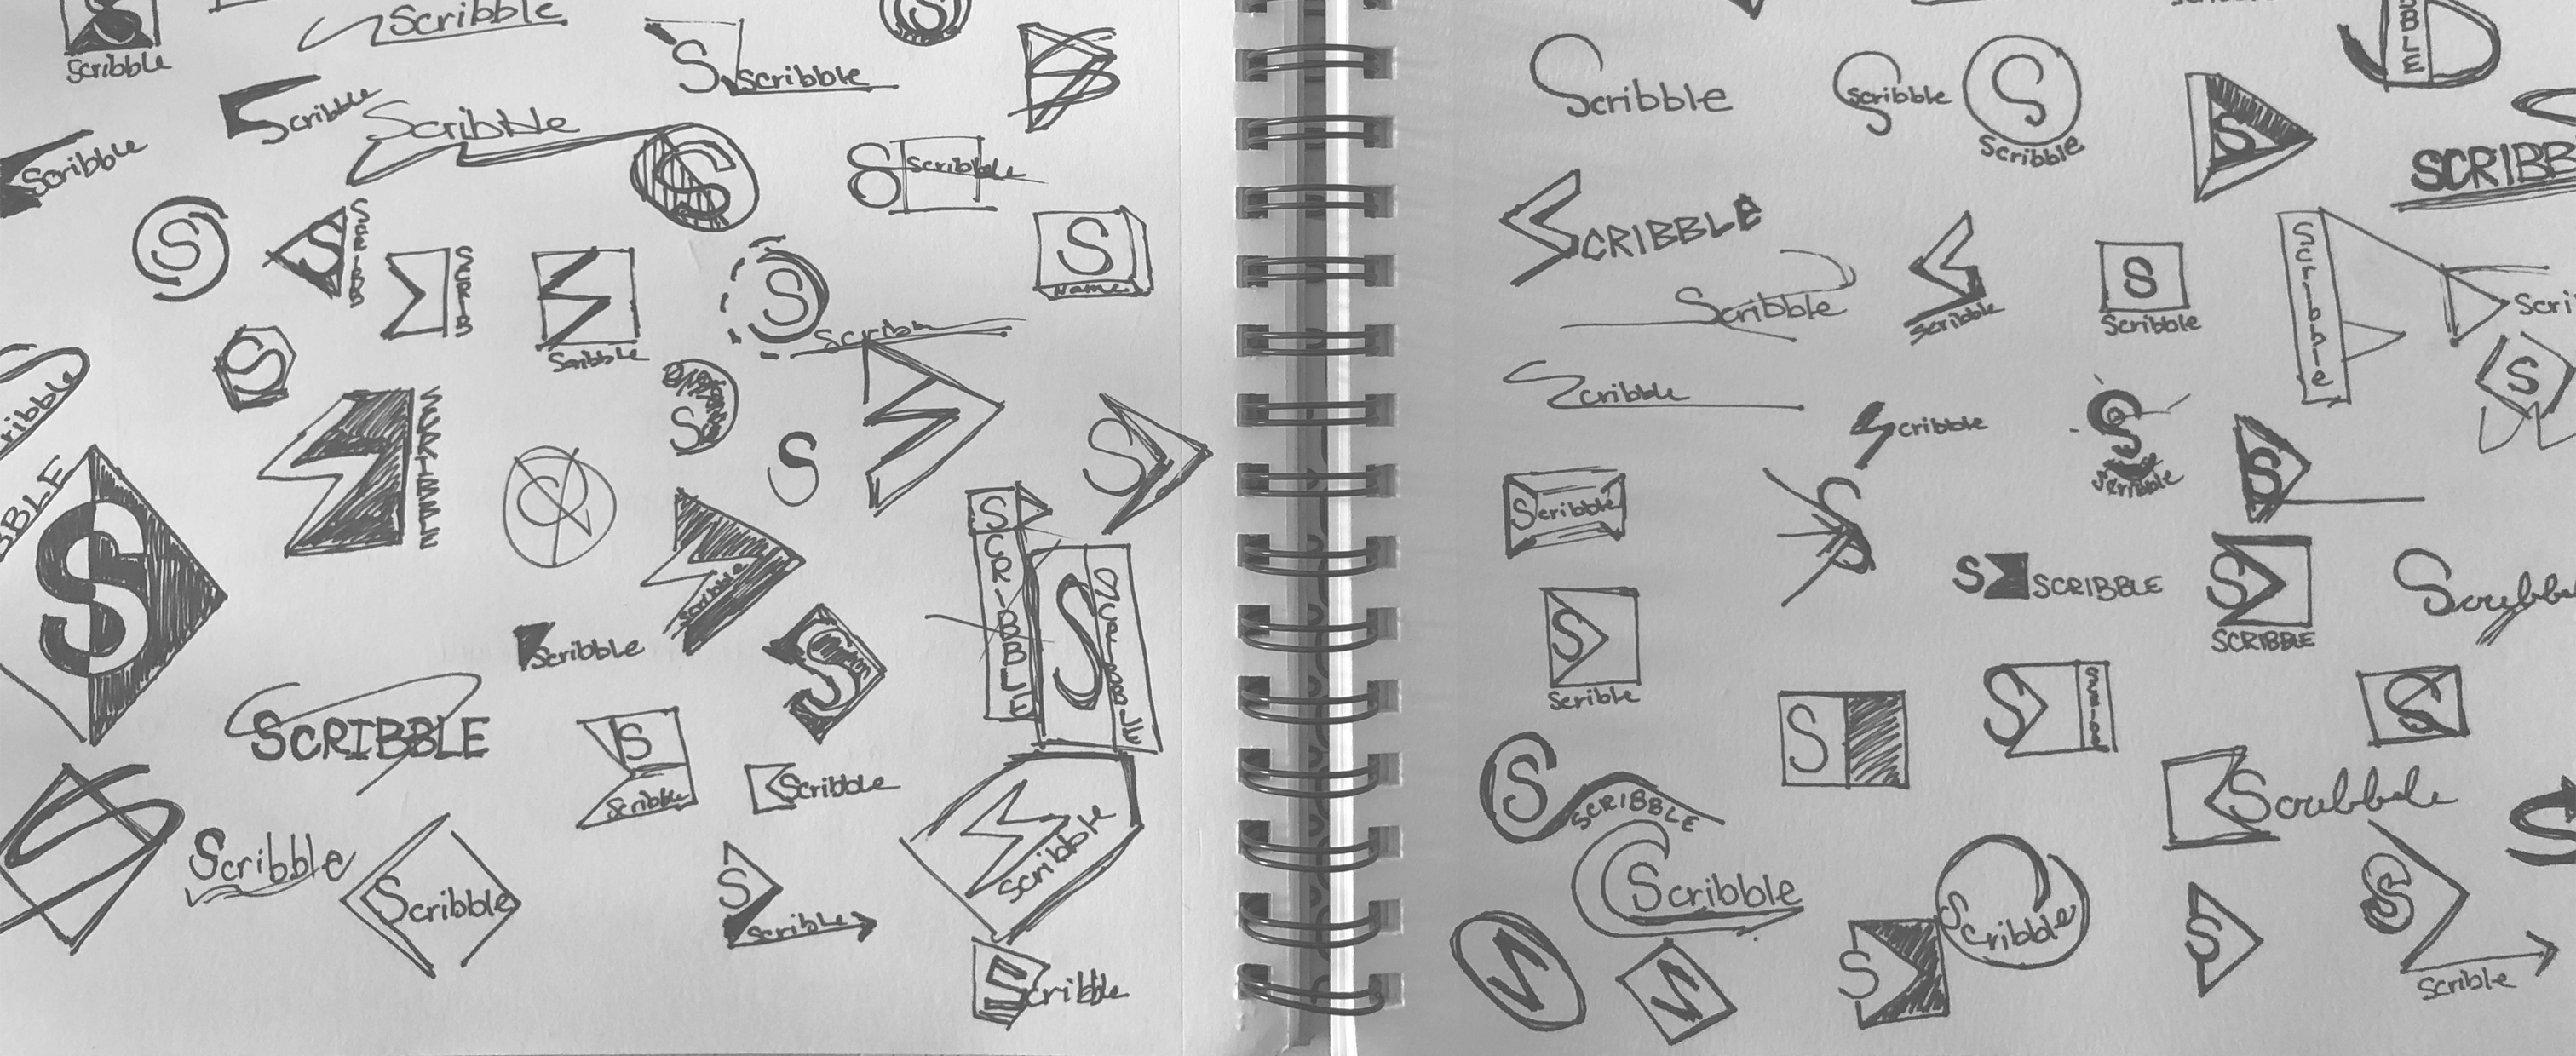 Scribble
Scribble
Scribble
Scribble
Scribble
S Scribble
S
Scribble
S
S Scribble
S
Name
S
S SCRIBB
SCRIB
Scribble
S
S
S
S
SCRIBBLE
S
S
BBLE
S
Scribble
Scribble
S
S SCRIBBLE
SCRIBBLE
SCRIBBLE
S
Scribble
Scribble
S
Scribble
Scribble
S
Scribble
Scribble
Scribble
Scribble
Scribble
Scribble
S
Scribble
S
SCRIBBLE
SCRIBB
Scribble
Scribble
S
Scribble
Scri
S
Scribble
Scribble
S
Scribble
S
Scribble
S
S SCRIBBLE
S
SCRIBBLE
S
Scrible
S
S
S
S
SCRIBBLE
Scribble
Scribble
Scribble
S
S
S
S
Scrible